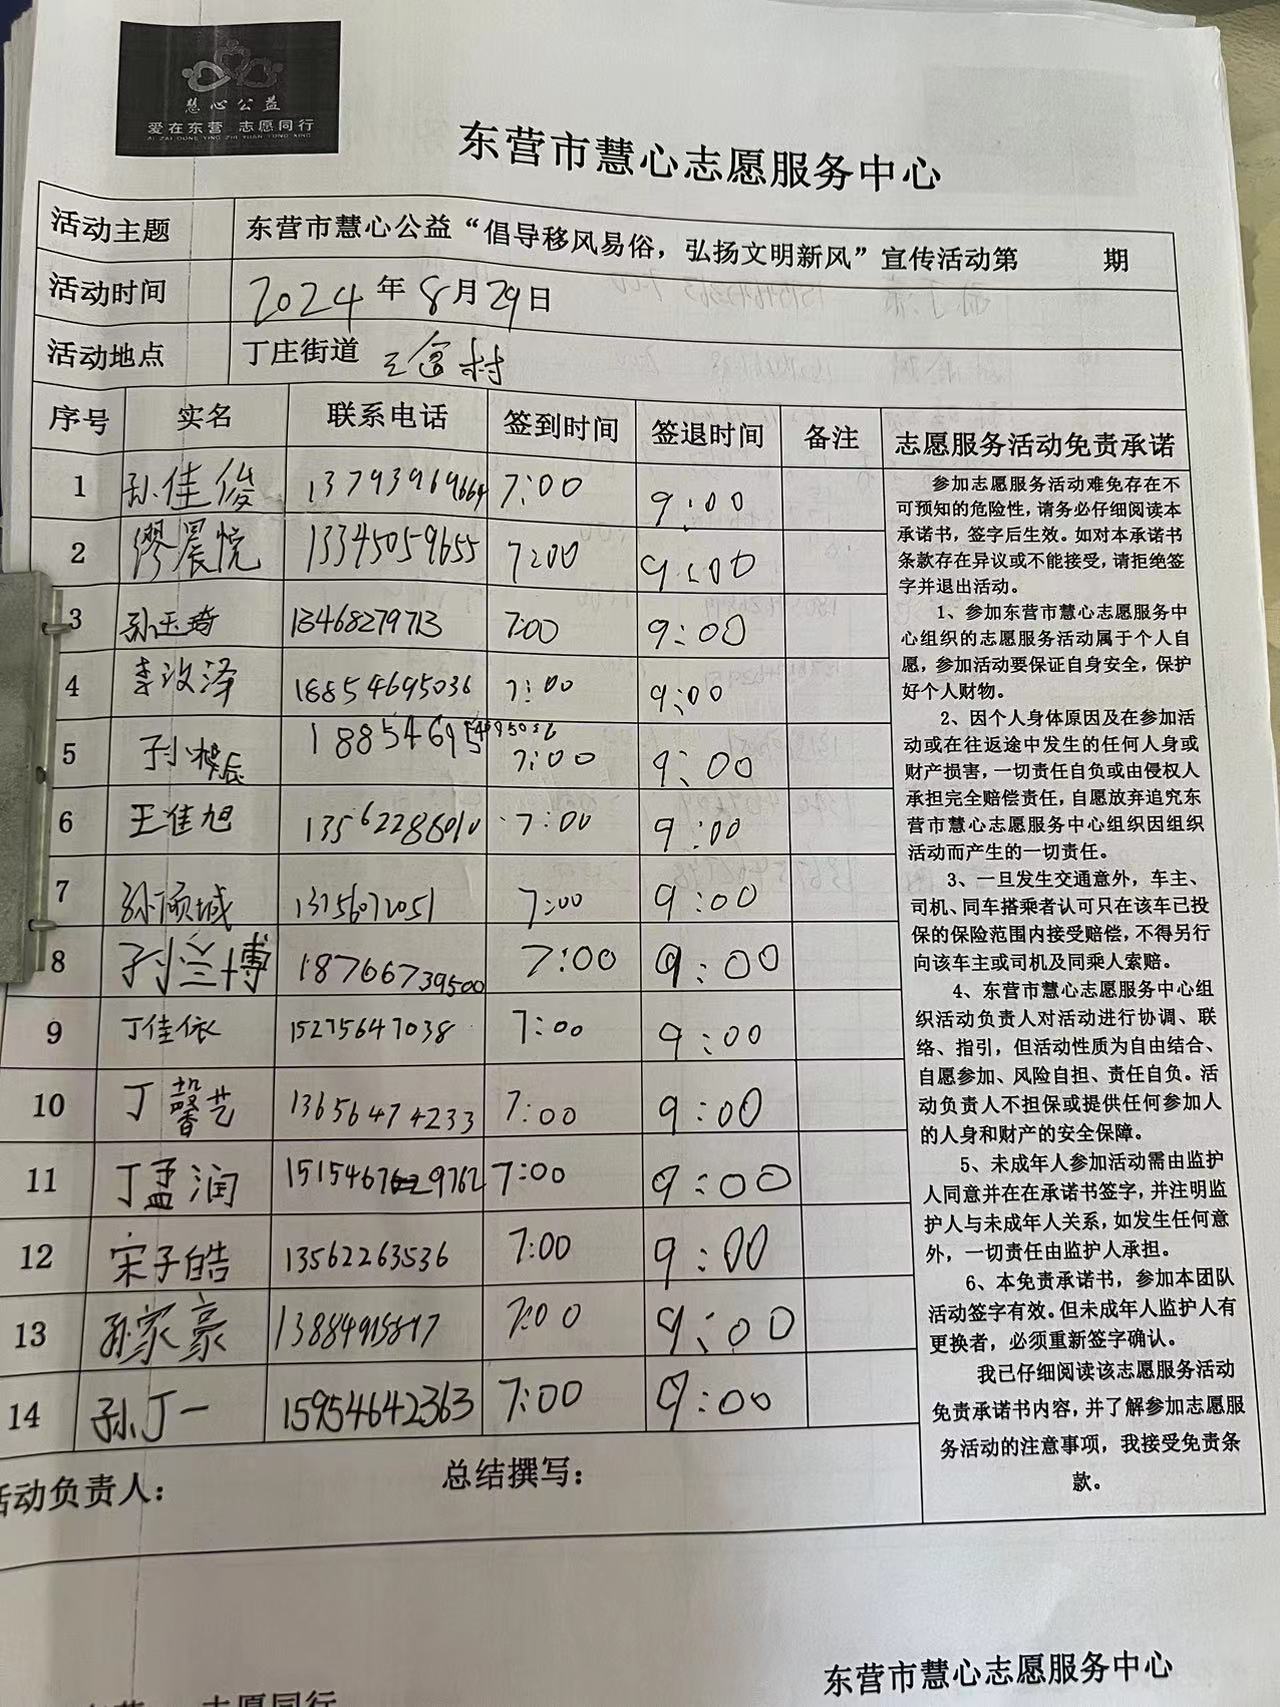 慧心公益
爱在东营 志愿同行
AI ZAI DONG YING ZHI YUAN TONG XING
东营市慧心志愿服务中心
活动主题 东营市慧心公益“倡导移风易俗，弘扬文明新风”宣传活动第 期
活动时间 2024年8月29日
活动地点 丁庄街道 王宫村
序号 实名 联系电话 签到时间 签退时间 备注 志愿服务活动免责承诺
1 孙佳俊 13793969664 7:00 9:00
2 缪晨悦 13345059655 7:00 9:00
3 孙玉琦 13468279713 7:00 9:00
4 李汶泽 18854695036 7:00 9:00
5 孙 辰 7:00 9:00
6 王佳旭 13562286010 7:00 9:00
7 孙倾城 7:00 9:00
8 孙兰博 18766739500 7:00 9:00
9 丁佳依 15275647038 7:00 9:00
10 丁馨艺 13656474233 7:00 9:00
11 丁孟润 7:00 9:00
12 宋子皓 13562263536 7:00 9:00
13 孙家豪 7:00 9:00
14 孙丁一 15954642363 7:00 9:00
参加志愿服务活动难免存在不
可预知的危险性，请务必仔细阅读本
承诺书，签字后生效。如对本承诺书
条款存在异议或不能接受，请拒绝签
字并退出活动。
1、参加东营市慧心志愿服务中
心组织的志愿服务活动属于个人自
愿，参加活动要保证自身安全，保护
好个人财物。
2、因个人身体原因及在参加活
动或在往返途中发生的任何人身或
财产损害，一切责任自负或由侵权人
承担完全赔偿责任，自愿放弃追究东
营市慧心志愿服务中心组织因组织
活动而产生的一切责任。
3、一旦发生交通意外，车主、
司机、同车搭乘者认可只在该车已投
保的保险范围内接受赔偿，不得另行
向该车主或司机及同乘人索赔。
4、东营市慧心志愿服务中心组
织活动负责人对活动进行协调、联
络、指引，但活动性质为自由结合、
自愿参加、风险自担、责任自负。活
动负责人不担保或提供任何参加人
的人身和财产的安全保障。
5、未成年人参加活动需由监护
人同意并在在承诺书签字，并注明监
护人与未成年人关系，如发生任何意
外，一切责任由监护人承担。
6、本免责承诺书，参加本团队
活动签字有效。但未成年人监护人有
更换者，必须重新签字确认。
我已仔细阅读该志愿服务活动
免责承诺书内容，并了解参加志愿服
务活动的注意事项，我接受免责条
款。
活动负责人： 总结撰写：
东营市慧心志愿服务中心
志愿同行